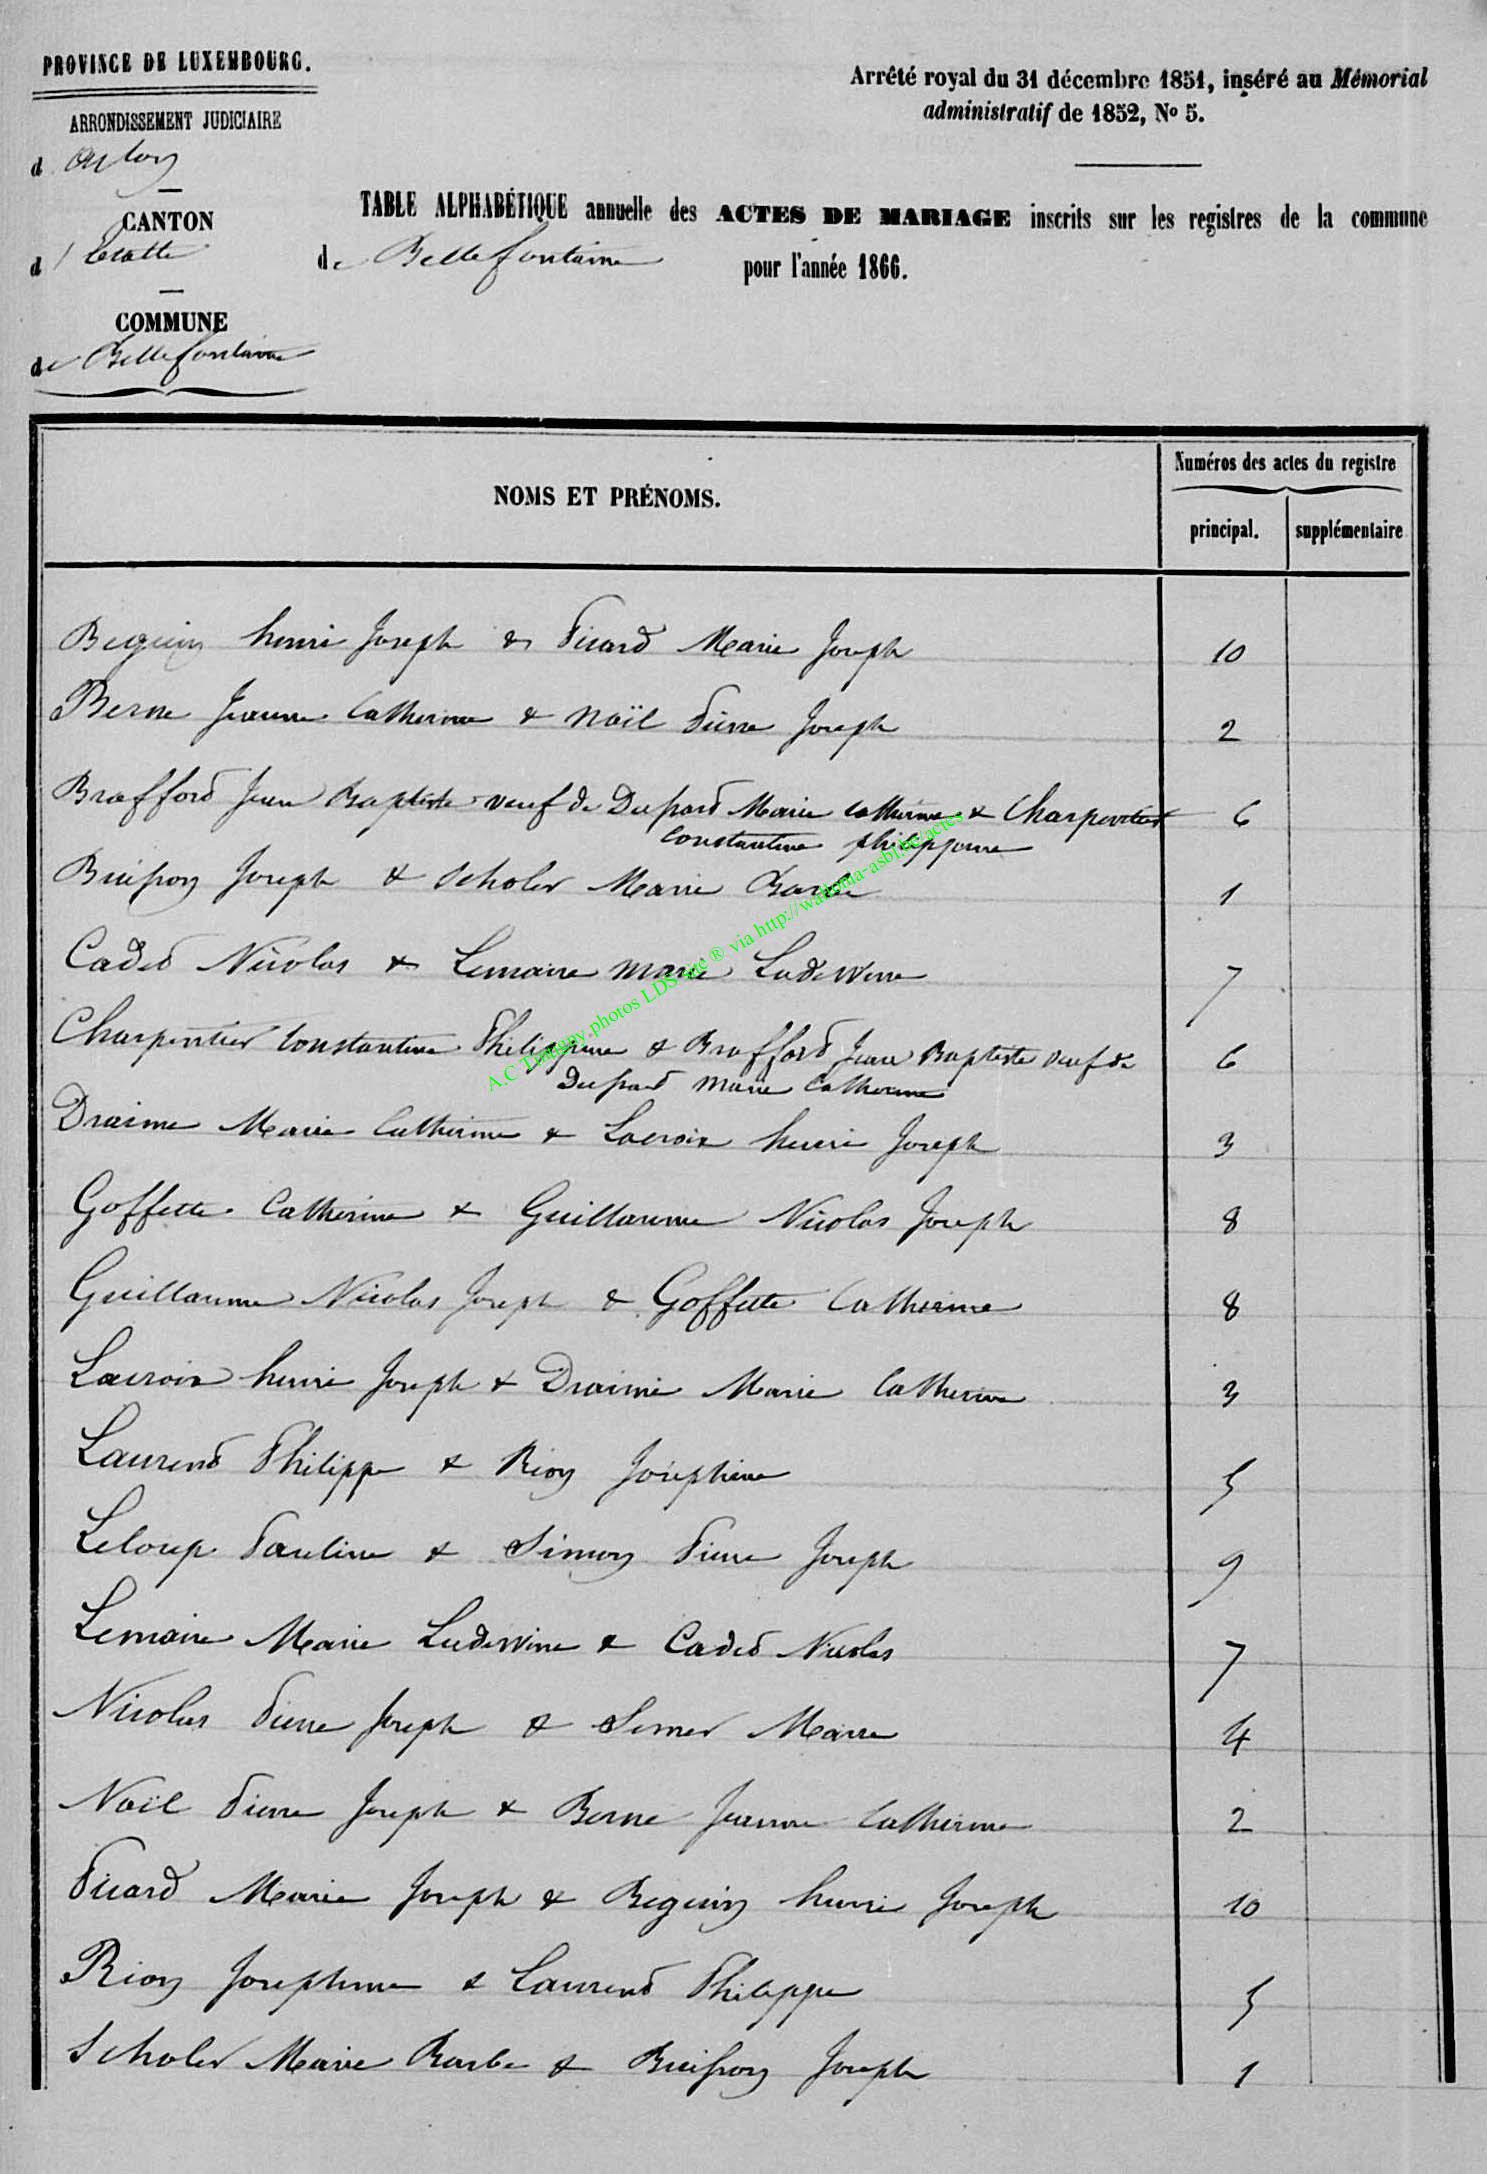 PROVINCE DE LUXEMBOURG.
Arrêté royal du 31 décembre 1851, inséré au Mémorial
administratif de 1852, No 5.
ARRONDISSEMENT JUDICIAIRE
d'Arlon
CANTON
d'Etalle
TABLE ALPHABÉTIQUE annuelle des ACTES DE MARIAGE inscrits sur les registres de la commune
de Bellefontaine pour l'année 1866.
COMMUNE
de Bellefontaine
NOMS ET PRÉNOMS.
Numéros des actes du registre
principal. supplémentaire
Beguin henri Joseph & Picard Marie Joseph 10
Berne Jeanne Catherine & Noël Pierre Joseph 2
Brafford Jean Baptiste veuf de Dupard Marie Catherine & Charpentier 6
Constantine philippine
Buisson Joseph & Scholer Marie Barbe 1
Cadet Nicolas & Lemaire Marie Ludewine 7
Charpentier Constantine Philippine & Brafford Jean Baptiste veuf de 6
Dupard Marie Catherine
Draime Marie Catherine & Lacroix henri Joseph 3
Goffette Catherine & Guillaume Nicolas Joseph 8
Guillaume Nicolas Joseph & Goffette Catherine 8
Lacroix henri Joseph & Draime Marie Catherine 3
Laurent Philippe & Rion Joséphine 5
Leloup Pauline & Simon Pierre Joseph 9
Lemaire Marie Ludewine & Cadet Nicolas 7
Nicolas Pierre Joseph & Simer Marie 4
Noël Pierre Joseph & Berne Jeanne Catherine 2
Picard Marie Joseph & Beguin henri Joseph 10
Rion Josephine & Laurent Philippe 5
Scholer Marie Barbe & Buisson Joseph 1
A.C Tintigny,photos LDS site ® via http://wallonia-asbl.be/actes